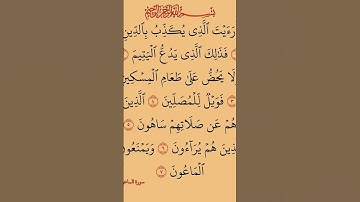 بِسْمِ ٱللَّهِ ٱلرَّحْمَٰنِ ٱلرَّحِيمِ
رَءَيْتَ ٱلَّذِى يُكَذِّبُ بِٱلدِّينِ
فَذَٰلِكَ ٱلَّذِى يَدُعُّ ٱلْيَتِيمَ
لَا يَحُضُّ عَلَىٰ طَعَامِ ٱلْمِسْكِينِ
٣ فَوَيْلٌ لِّلْمُصَلِّينَ ٤ ٱلَّذِينَ
هُمْ عَن صَلَاتِهِمْ سَاهُونَ ٥
ذِينَ هُمْ يُرَآءُونَ ٦ وَيَمْنَعُونَ
ٱلْمَاعُونَ ٧
سورة الماعو